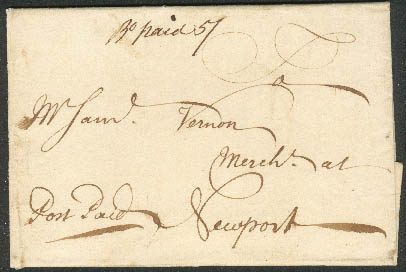 paid 5/
To
Mr. Saml. Vernon
Mercht. at
Post Paid Newport